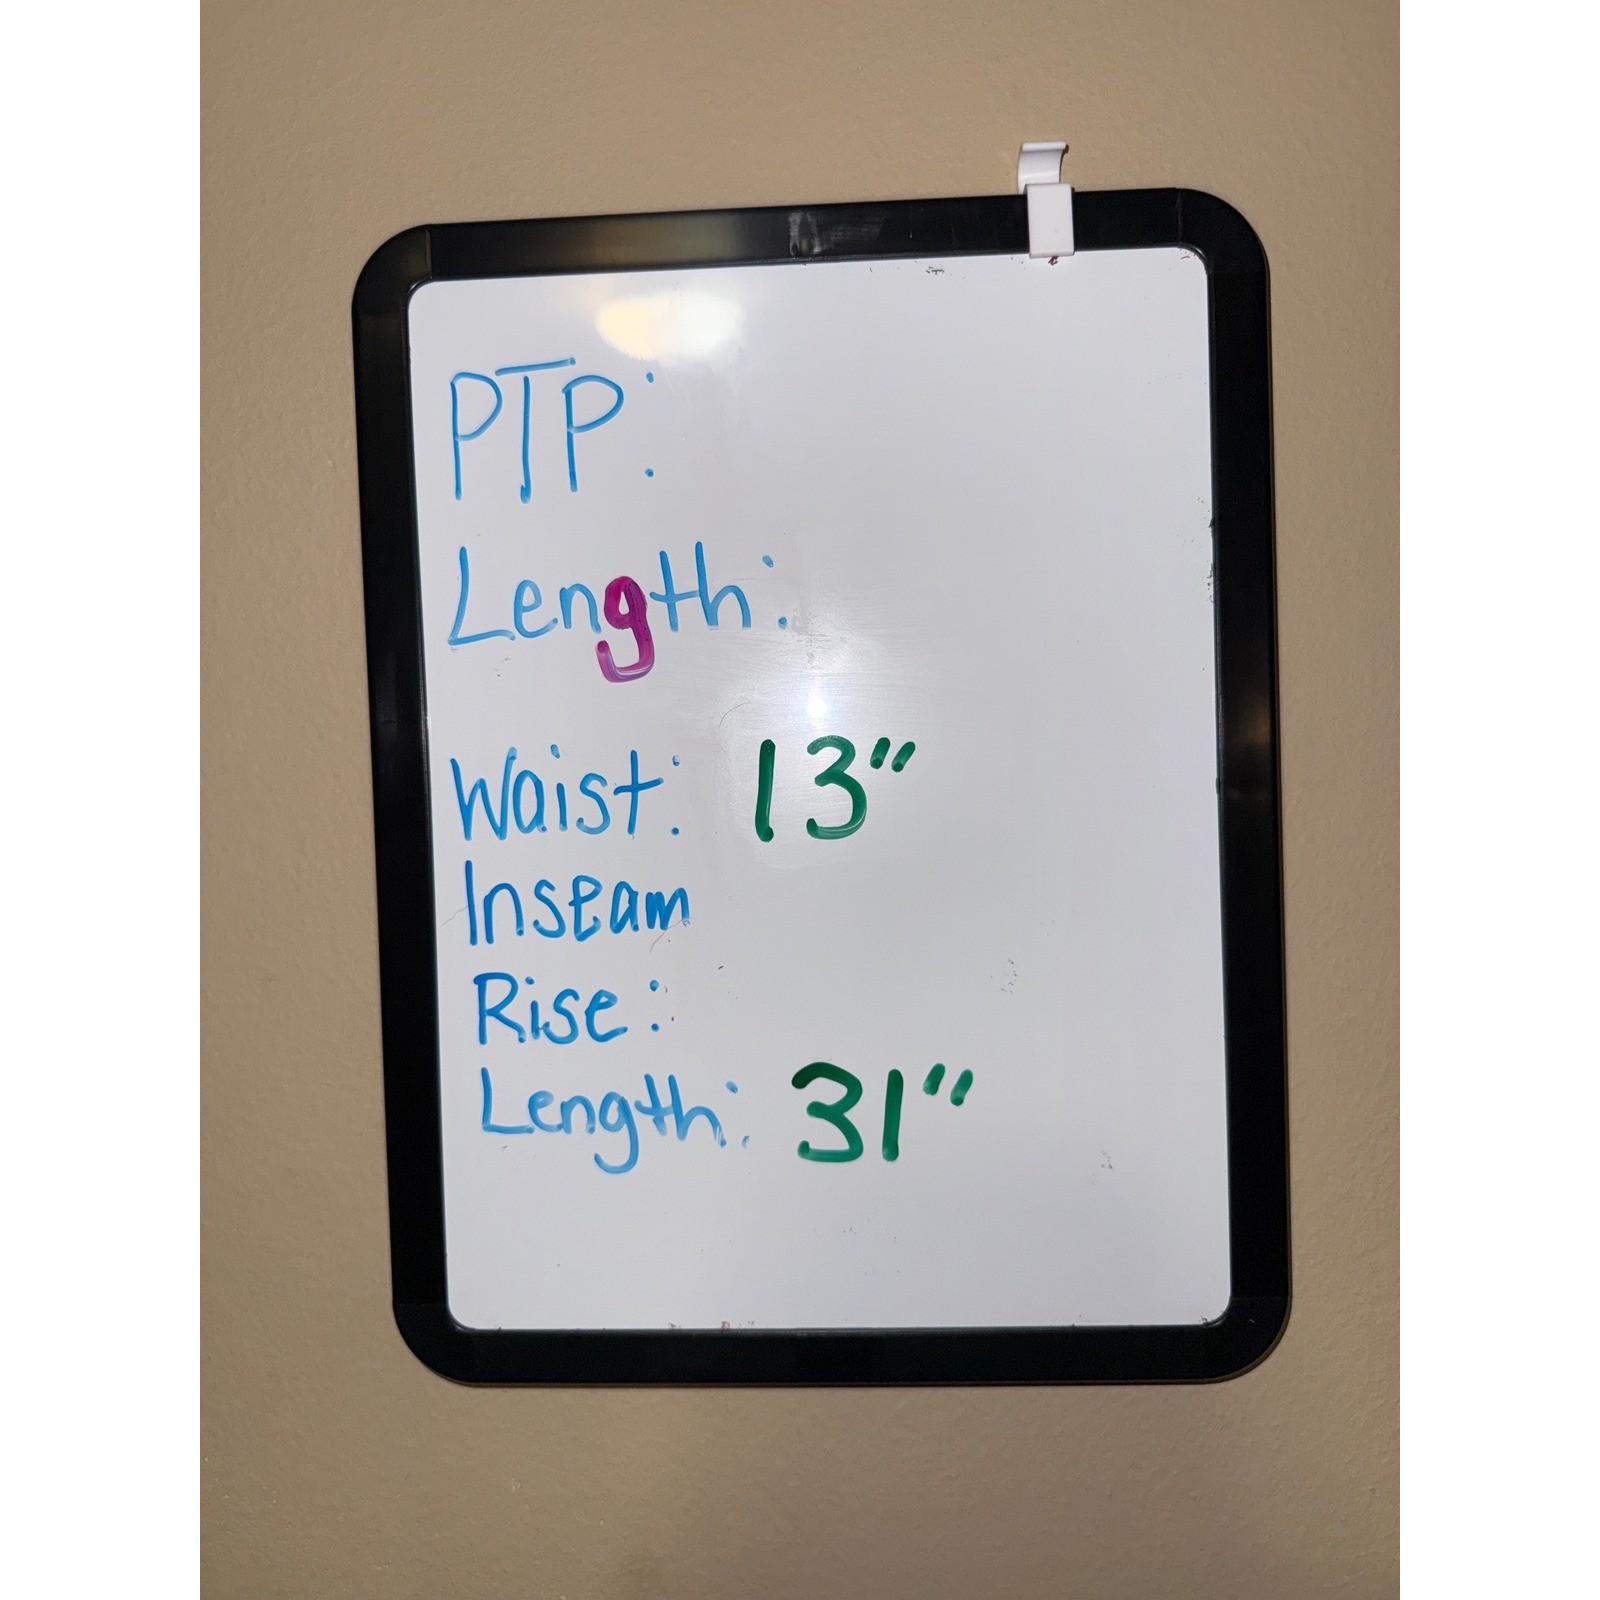 PTP:
Length:
Waist: 13"
Inseam
Rise:
Length: 31"